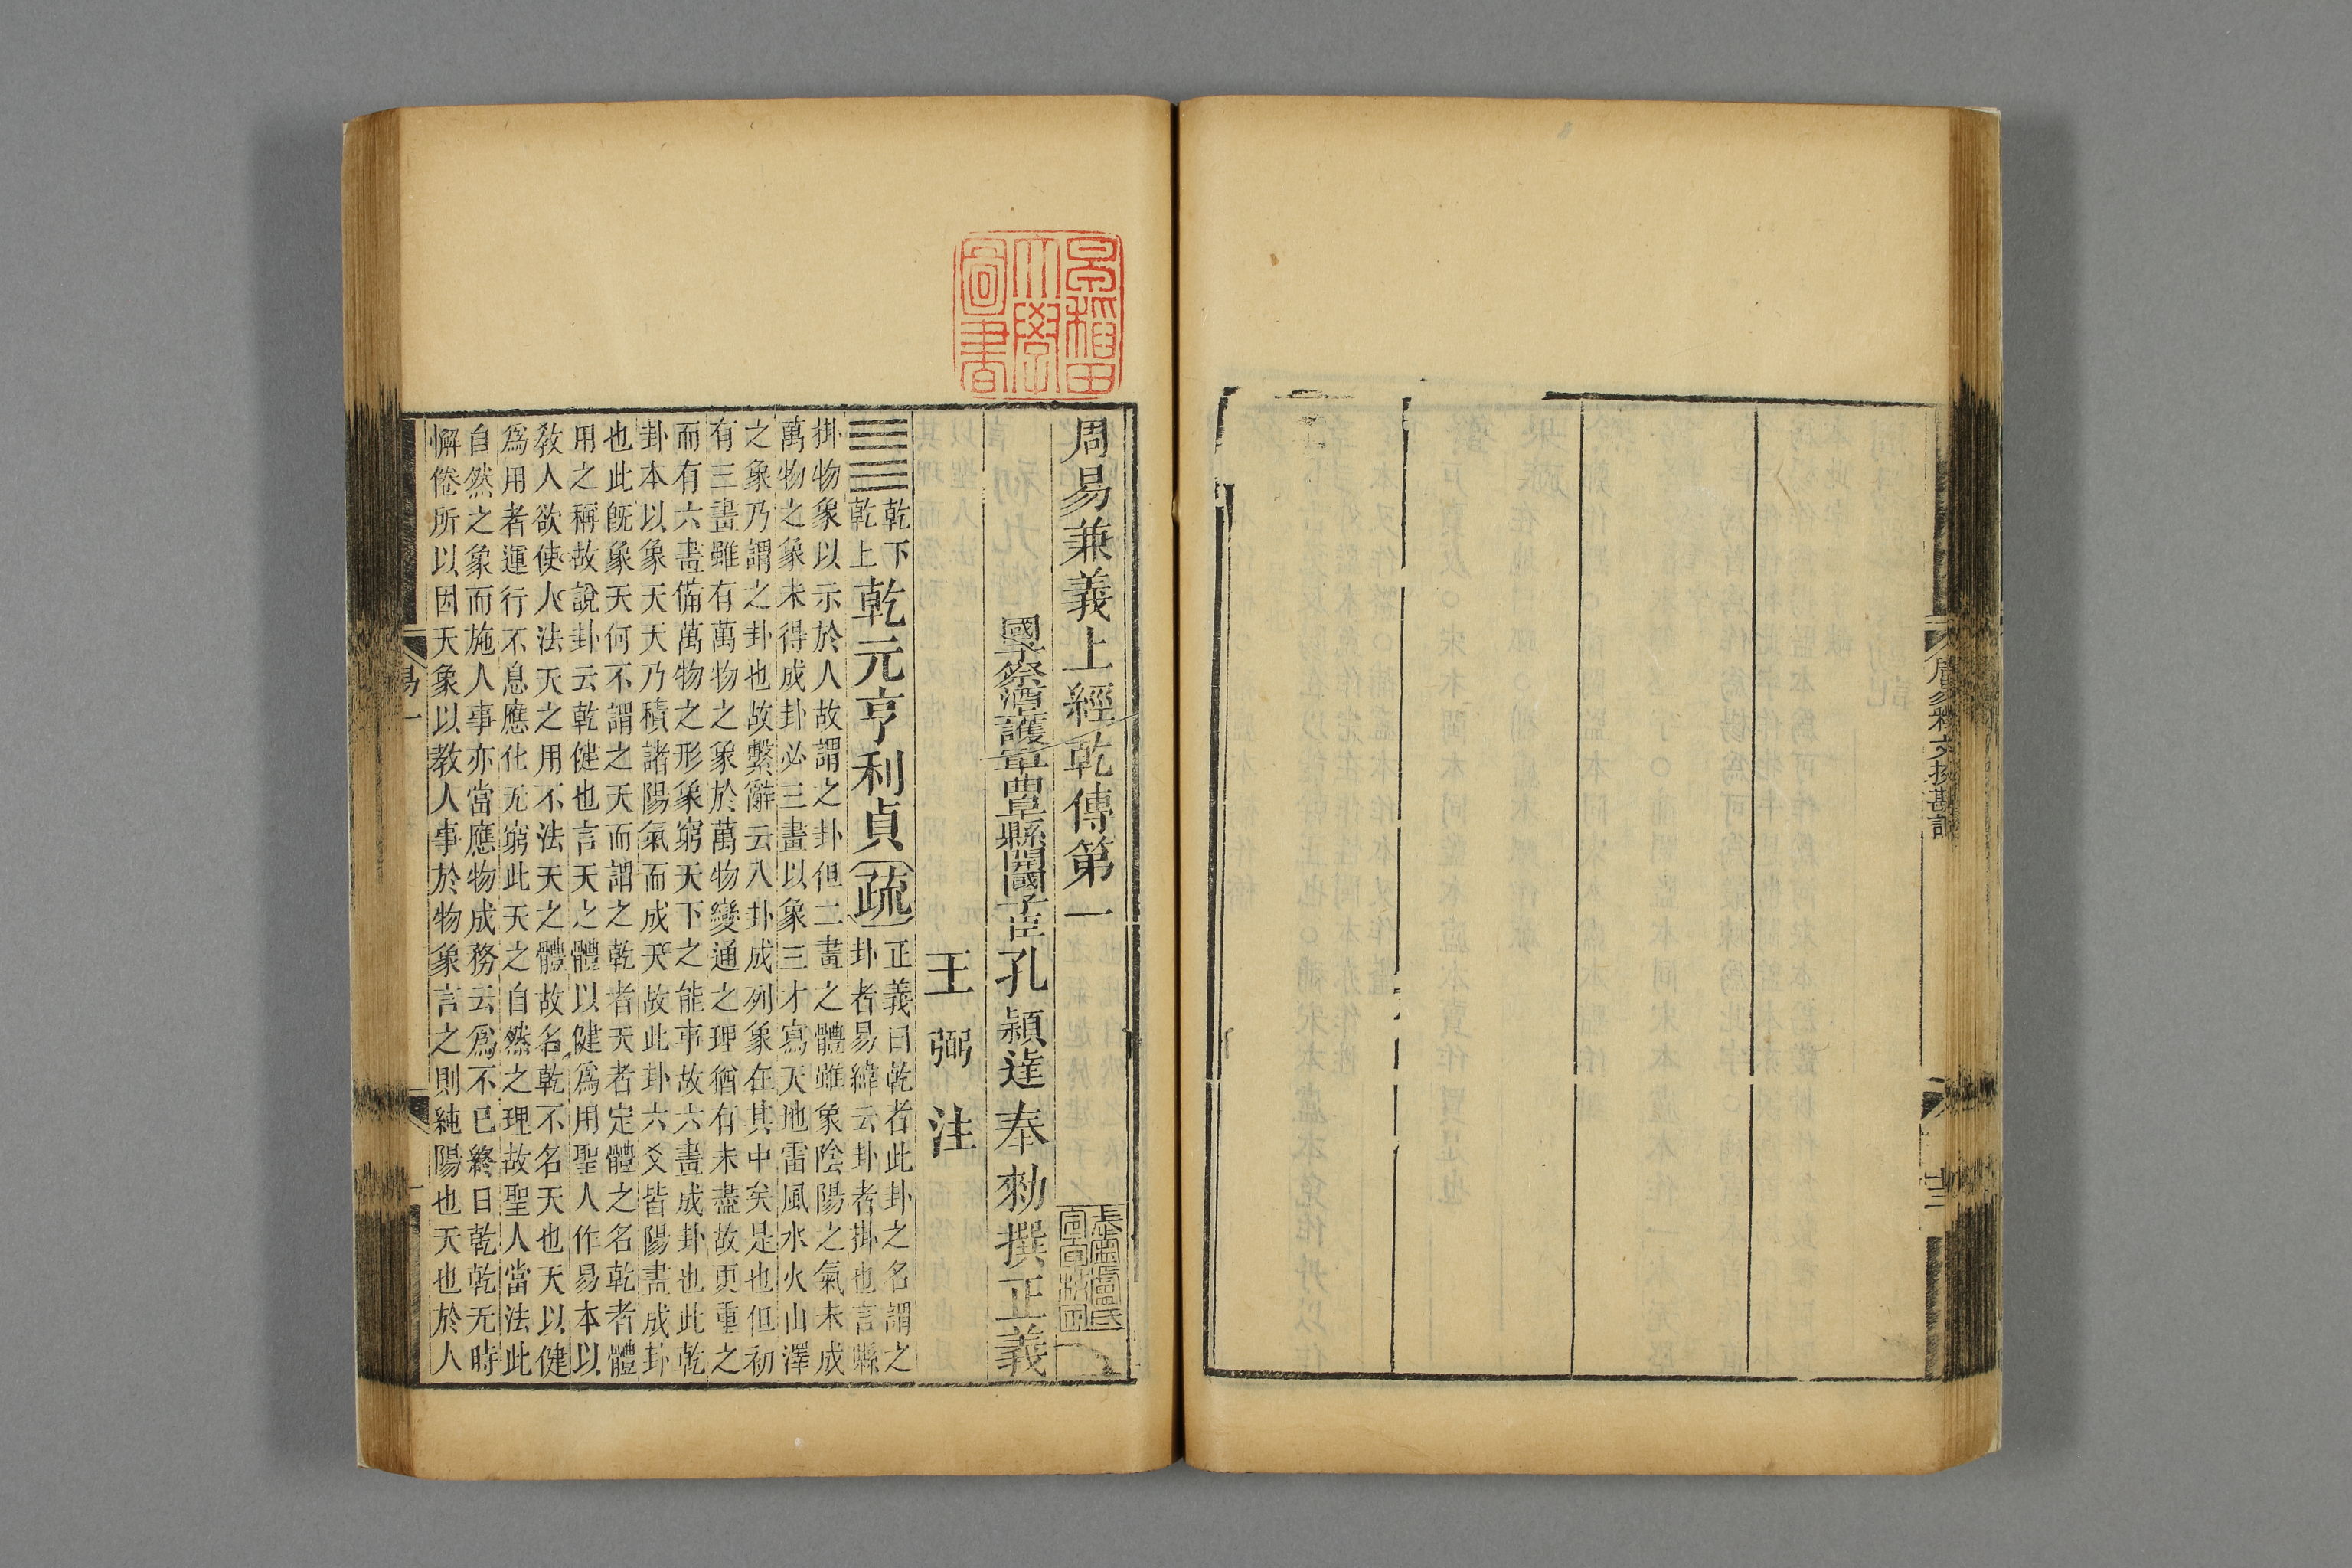 周易釋文挍勘記
早稲田
大學
圖書
周易兼義上經乾傳第一
國子祭酒上護軍曲阜縣開國子臣孔穎達奉勑撰正義
王弼注
乾下
乾上
乾元亨利貞
疏
正義曰乾者此卦之名謂之
卦者易緯云卦者掛也言縣
掛物象以示於人故謂之卦但二畫之體雖象陰陽之氣未成
萬物之象未得成卦必三畫以象三才寫天地雷風水火山澤
之象乃謂之卦也故繫辭云八卦成列象在其中矣是也但初
有三畫雖有萬物之象於萬物變通之理猶有未盡故更重之
而有六畫備萬物之形象窮天下之能事故六畫成卦也此乾
卦本以象天天乃積諸陽氣而成天故此卦六爻皆陽畫成卦
也此旣象天何不謂之天而謂之乾者天者定體之名乾者體
用之稱故說卦云乾健也言天之體以健爲用聖人作易本以
敎人欲使人法天之用不法天之體故名乾不名天也天以健
爲用者運行不息應化无窮此天之自然之理故聖人當法此
自然之象而施人事亦當應物成務云爲不已終日乾乾无時
懈倦所以因天象以敎人事於物象言之則純陽也天也於人
易一
一